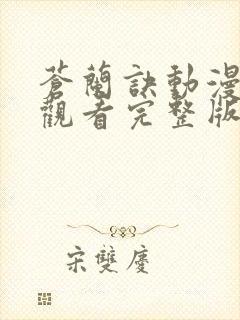 蒼蘭訣動漫
觀看完整版
宋雙慶